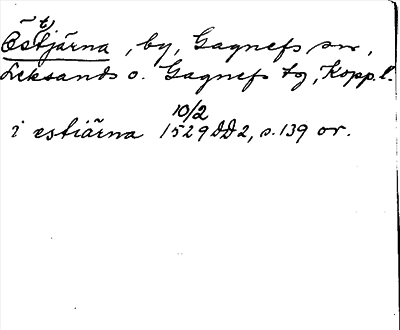 Östjärna, by, Gagnefs sn,
Leksands o. Gagnefs tg, Kopp.l.
i estiärna 10/2 1529 DD2, s. 139 or.